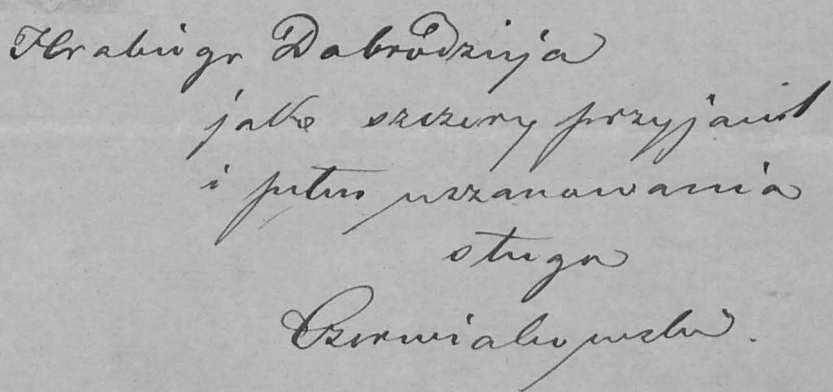 Hrabiego Dobrodzieja
jako szczery przyjaciel
i pełen uszanowania
sługa
Czerwiakowski.